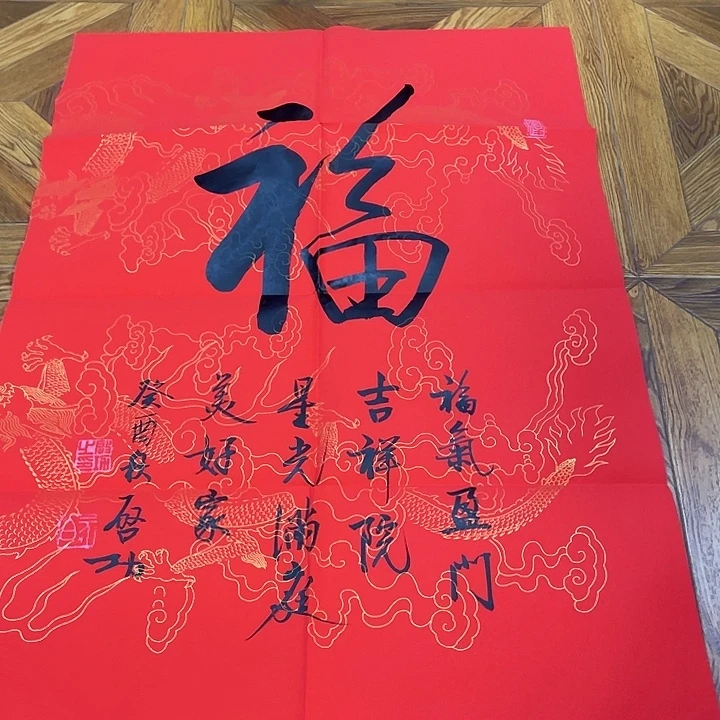 福
福氣盈門
吉祥院
星光滿庭
美好家
癸酉秋
啓功